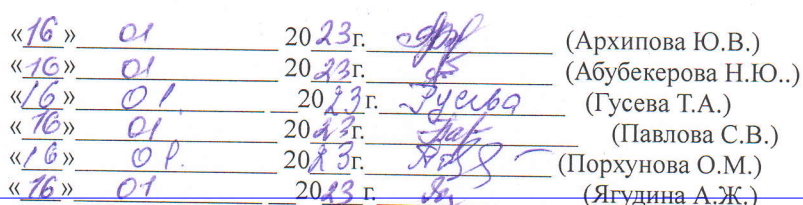 «16» 01 2023г. (Архипова Ю.В.)
«16» 01 2023г. (Абубекерова Н.Ю..)
«16» 01. 2023г. Гусева (Гусева Т.А.)
«16» 01. 2023г. (Павлова С.В.)
«16» 01. 2023г. (Порхунова О.М.)
«16» 01 2023г. (Ягудина А.Ж.)